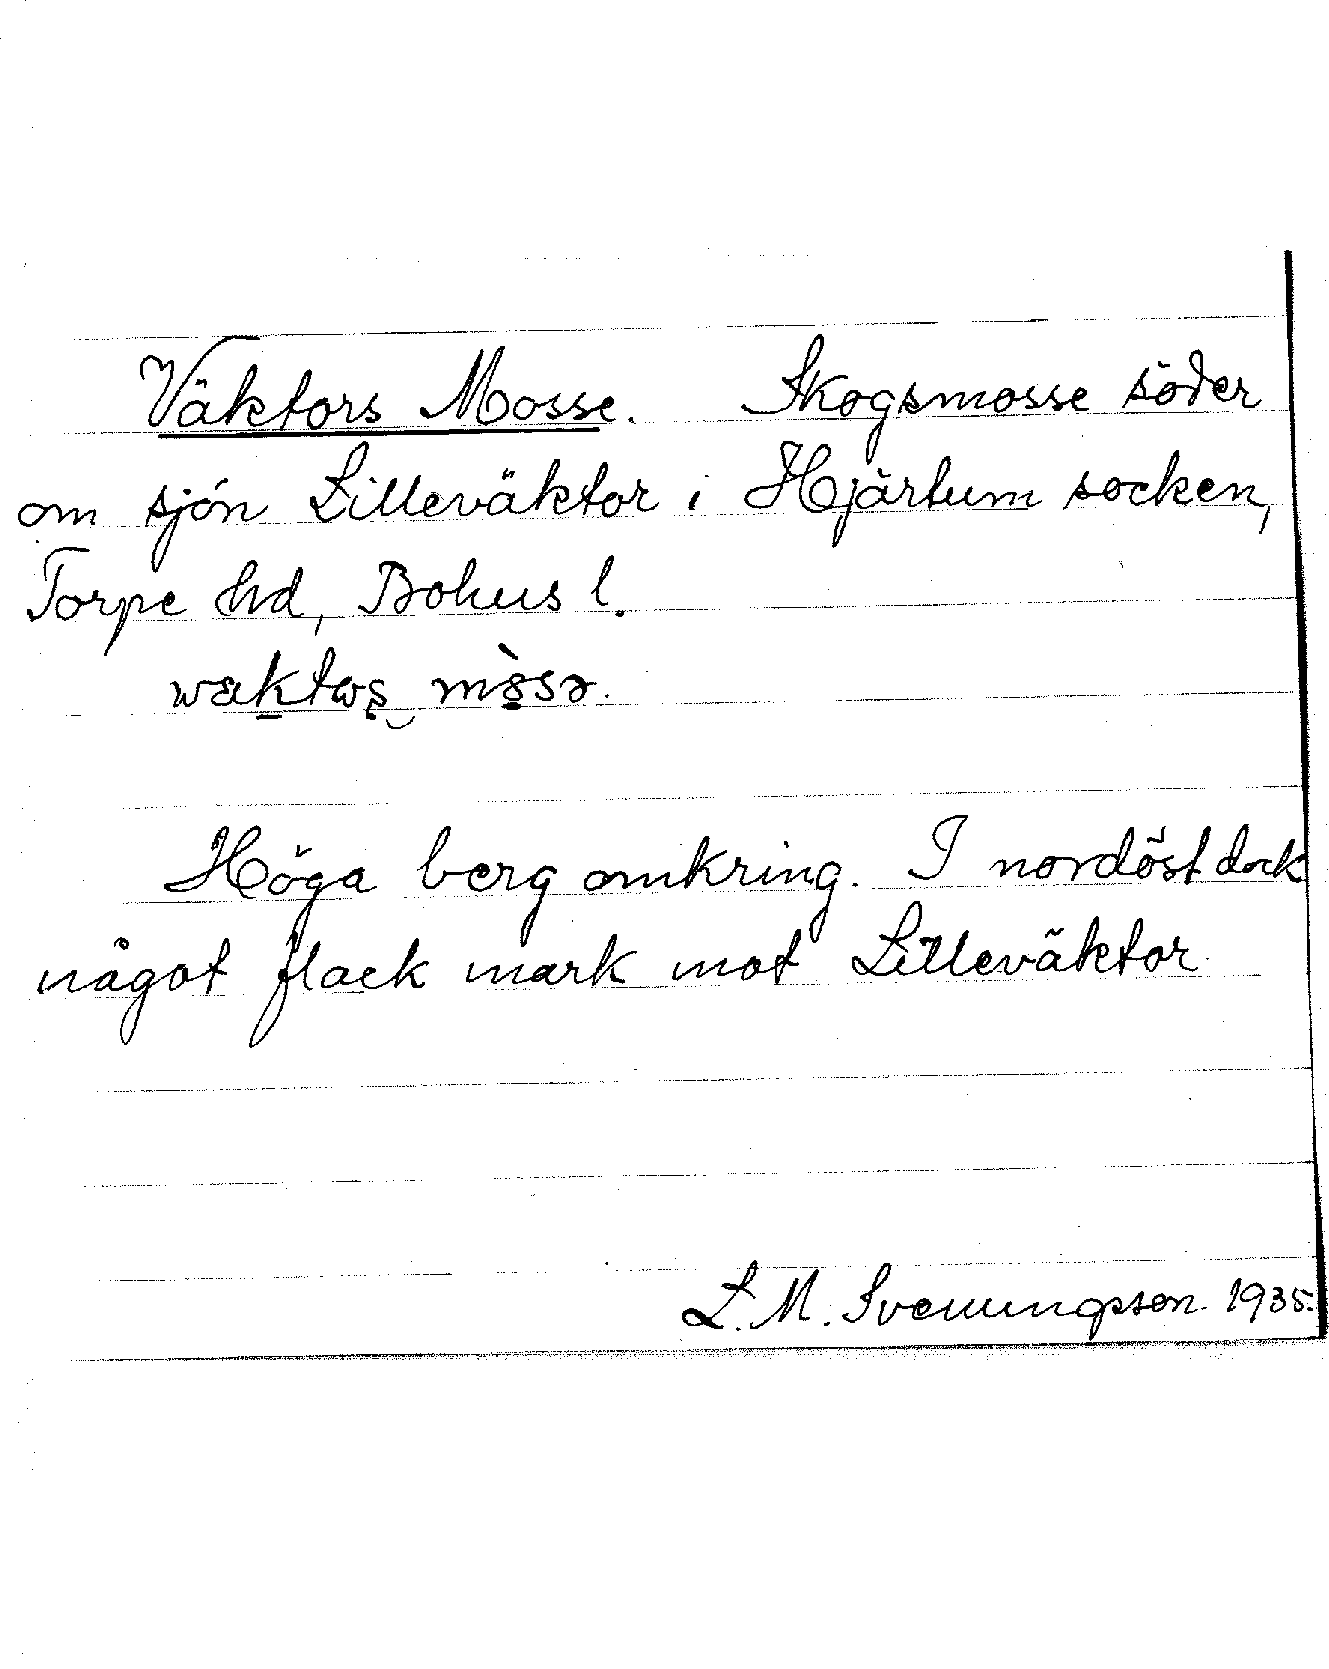 Väktors Mosse. Skogsmosse söder
om sjön Lilleväktor i Hjärtum socken,
Torpe hd, Bohus l.
Höga berg omkring. I nordöst dock
något flack mark mot Lilleväktor
L. M. Svenungsson. 1935.